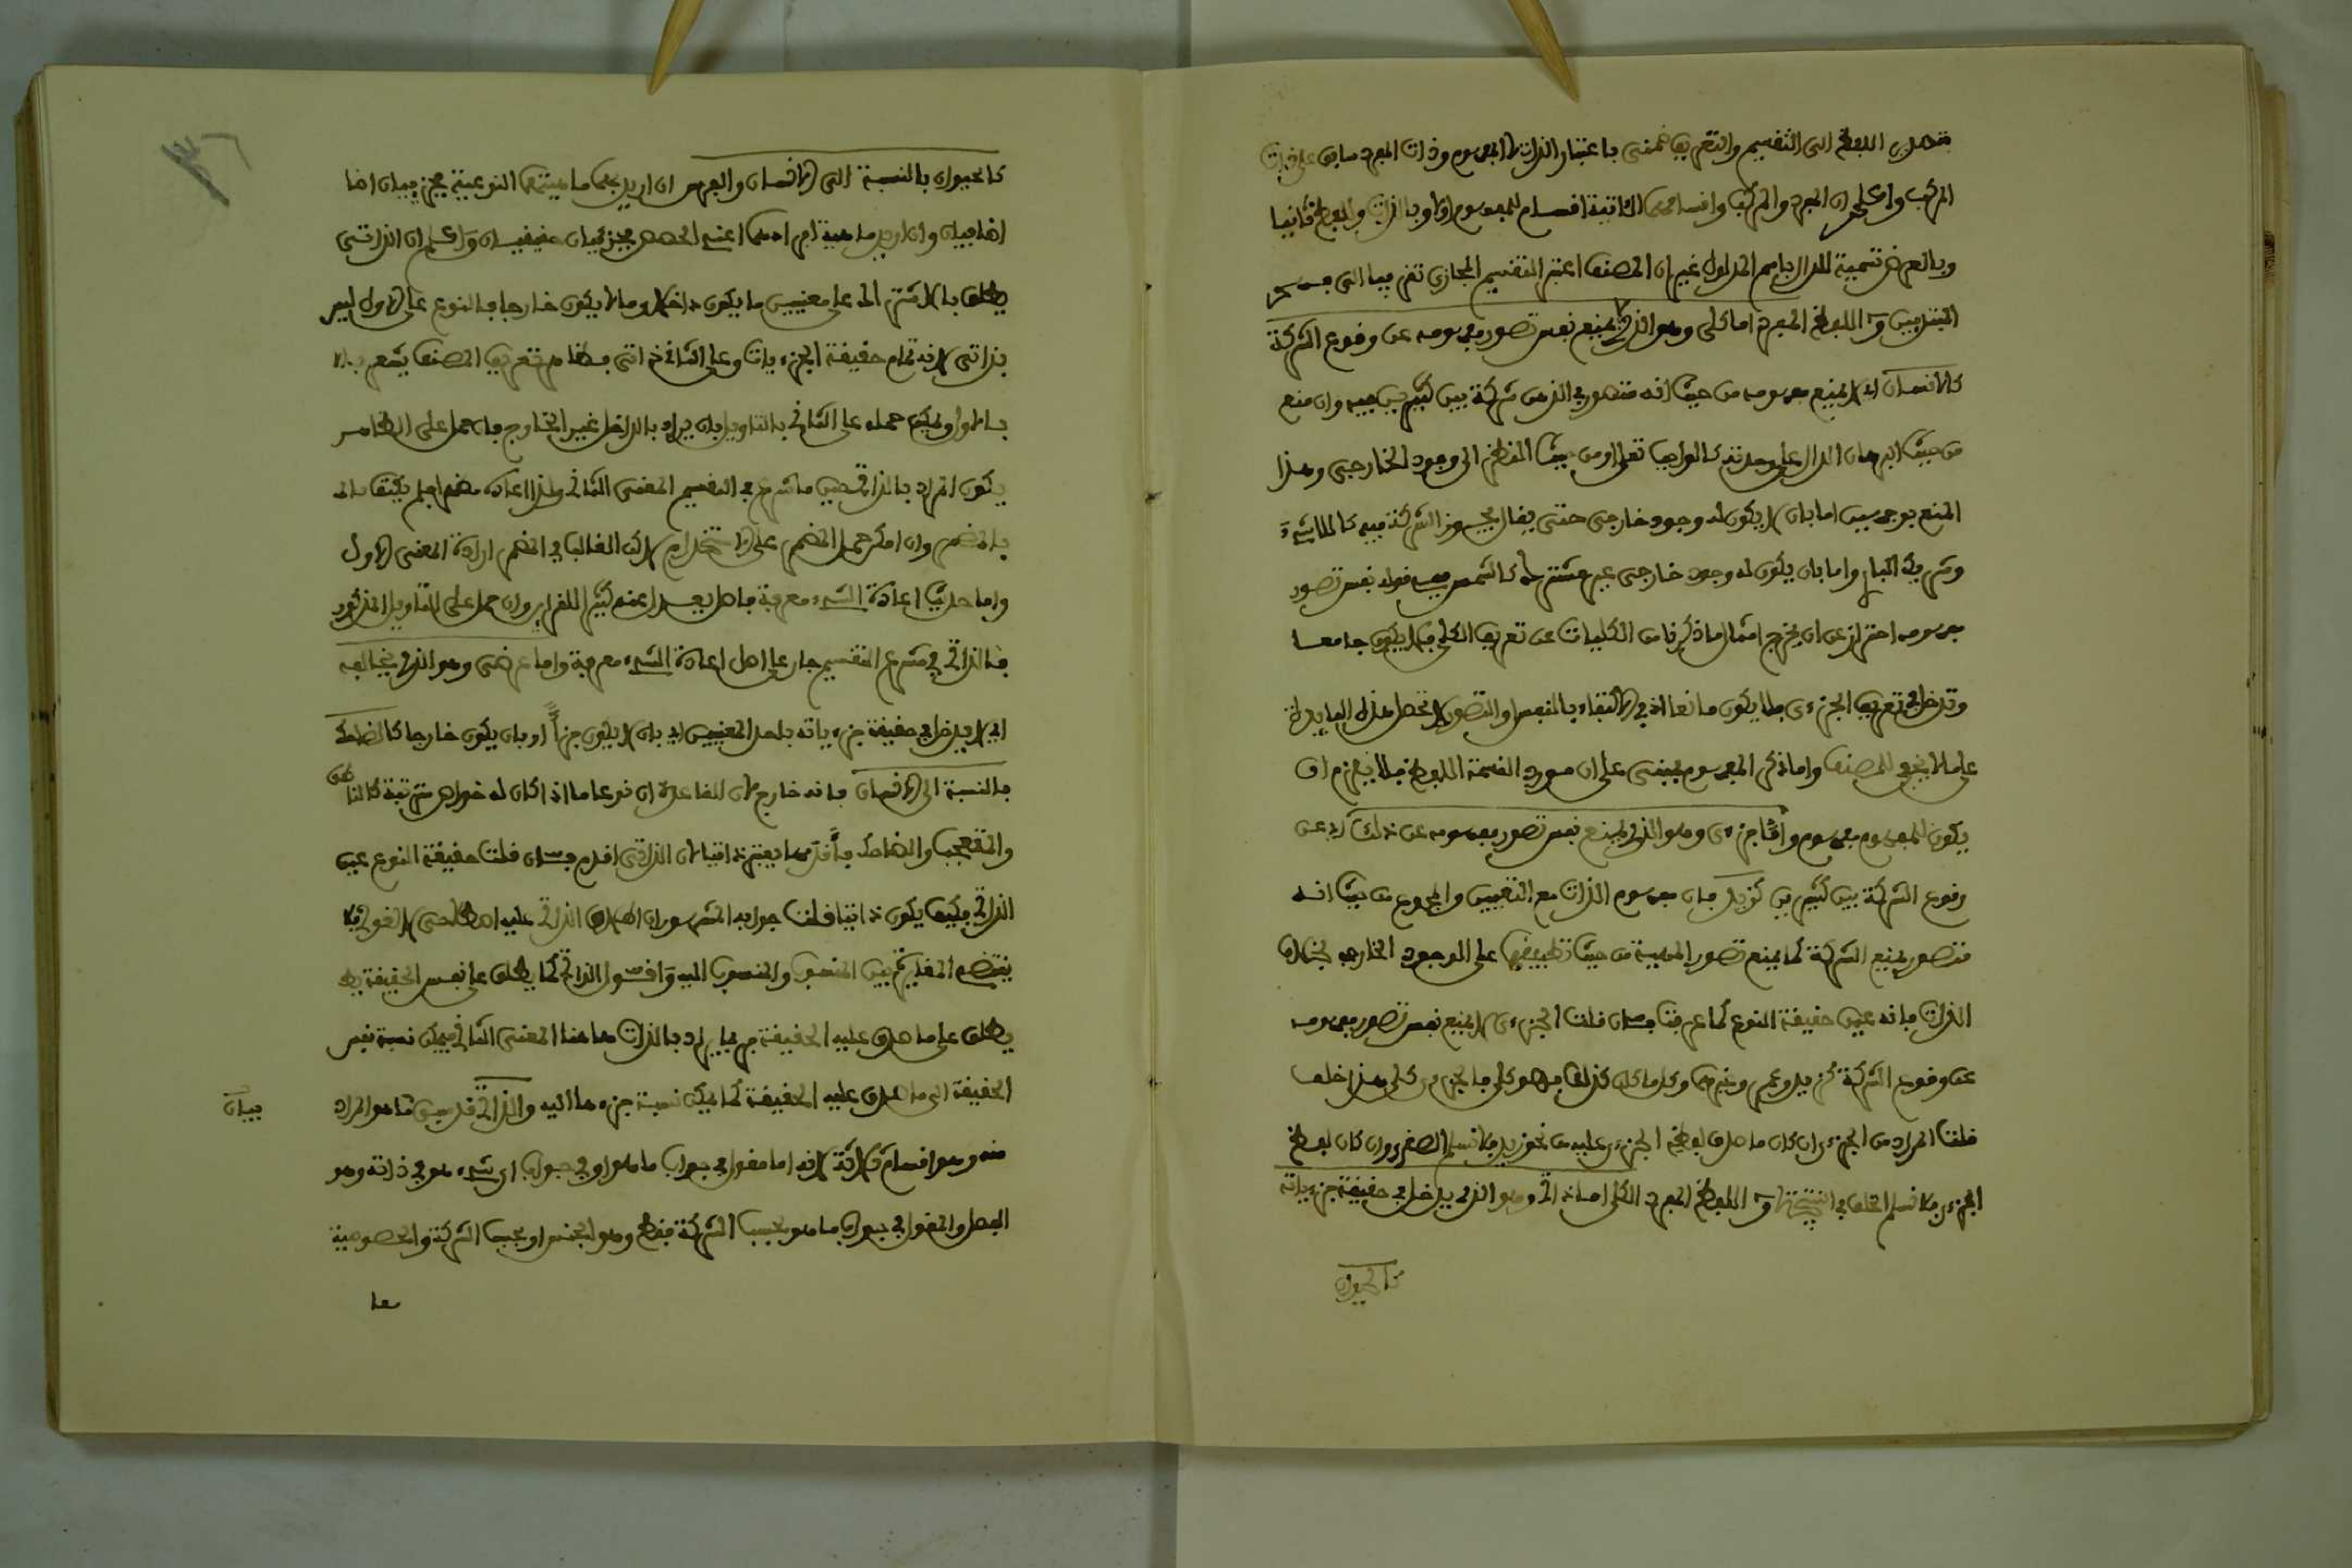 فصل اللفظ الى التقسيم والتعريف ضمنى باعتبار الذات لا المفهوم وذات المفرد سابق على ذات
المركب واعلم ان المفرد والمركب واقسامهما الثانية اقسام للمفهوم اولا وبالذات وللفظ ثانيا
وبالعرض تسمية للدال باسم المدلول غير ان المصنف اعتبر التقسيم المجازى تقريبا الى فهم
المبتديين واللفظ المفرد اما كلى وهو الذى لا يمنع نفس تصور مفهومه عن وقوع الشركة
كالانسان اذ لا يمنع مفهومه من حيث انه متصور فى الذهن شركة بين كثيرين فيه وان منع
من حيث البرهان الدال على وحدته كالواجب تعالى او من حيث النظر الى وجود الخارجى وهذا
المنع بوجهين اما بان لا يكون له وجود خارجى حتى يقال يجوز الشركة فيه كاللاشىء
وشريك البارى واما بان يكون له وجود خارجى غير مشترك كالشمس فقوله نفس تصور
مفهومه احتراز عن ان يخرج امثال ما ذكرنا من الكليات عن تعريف الكلى فلا يكون جامعا
وتدخل فى تعريف الجزءى فلا يكون مانعا اذ فى الاكتفاء بالنفس او التصور لا تحصل هذه الفايدة
على ما لا يخفى للمصنف واما ذكر المفهوم فمبنى على ان مورد القسمة اللفظ فلا يلزم ان
يكون للمفهوم مفهوم واما جزءى وهو الذى يمنع نفس تصور مفهومه عن ذلك اى عن
وقوع الشركة بين كثيرين كزيد فان مفهوم الذات مع التعيين والمجموع من حيث انه
متصور يمنع الشركة كما يمنع تصور الماهية من حيث تطبيقها على الوجود الخارجى بخلاف
الذات فانه عين حقيقة النوع كما عرفت فان قلت الجزءى لا يمنع نفس تصور مفهومه
عن وقوع الشركة كزيد وعمرو وغيرهما وكل ما كان كذلك فهو كلى فالجزءى كلى هذا خلف
قلت المراد من الجزءى ان كان ما صدق لفظ الجزءى عليه من نحو زيد فلا نسلم الصغرى وان كان لفظ
الجزءى فلا نسلم الخلف فى النتيجة واللفظ المفرد الكلى اما ذاتى وهو الذى يدخل فى حقيقة جزءياته
كالحيوان
كالحيوان بالنسبة الى الانسان والفرس ان اريد بهما ماهيتهما النوعية فجزءيان اضا
اضافيان وان اريد ماهية افرادهما اعنى الحصص فجزءيان حقيقيان واعلم ان الذاتى
يطلق بالاشتراك على معنيين ما يكون داخلا وما لا يكون خارجا فالنوع على الاول ليس
بذاتى لانه تمام حقيقة الجزءيات وعلى الثانى ذاتى فظاهر تعريف المصنف يشعر بالا
بالاول ويمكن حمله على الثانى بالتاويل بان يراد بالداخل غير الخارج فان حمل على الظاهر
يكون المراد بالذاتى حين ما شرع فى التقسيم المعنى الثانى ولذا اعاده مظهرا ولم يكتف بالـ
بالمضمر وان امكن حمل المضمر على الاستخدام لان الغالب فى المضمر ارادة المعنى الاول
واما حديث اعادة الشىء معرفة فاصل يعدل عنه كثيرا للقراين وان حمل على التاويل المذكور
فالذاتى فى مشرع التقسيم جار على اصل اعادة الشىء معرفة واما عرضى وهو الذى يخالفه
اى لا يدخل فى حقيقة جزءياته باحد المعنيين اى بان لا يكون جزأ او بان يكون خارجا كالضاحك
بالنسبة الى الانسان فانه خارج لان القاعدة ان نوعا ما اذا كان له خواص مترتبة كالناطق
والمتعجب والضاحك فاقدمها يعتبر ذاتيا لان الذاتى اقدم فان قلت حقيقة النوع عين
الذاتى فكيف يكون ذاتيا قلت جوابه المشهور ان اطلاق الذاتى عليه اصطلاحى لا لغوى فلا
يقتضى المغايرة بين المنسوب والمنسوب اليه واقول الذاتى كما يطلق على نفس الحقيقة يطـ
يطلق على ما صدق عليه الحقيقة فربما يراد بالذات هاهنا المعنى الثانى فيمكن نسبة نفس
الحقيقة الى ما صدق عليه الحقيقة كما يمكن نسبة جزءها اليه والذاتى قد بين ما هو المراد
منه وهو اقسام ثلاثة لانه اما مقول فى جواب ما هو او فى جواب اى شىء هو فى ذاته وهو
الفصل والمقول فى جواب ما هو بحسب الشركة فقط وهو الجنس او بحسب الشركة والخصوصية
معا
بيان